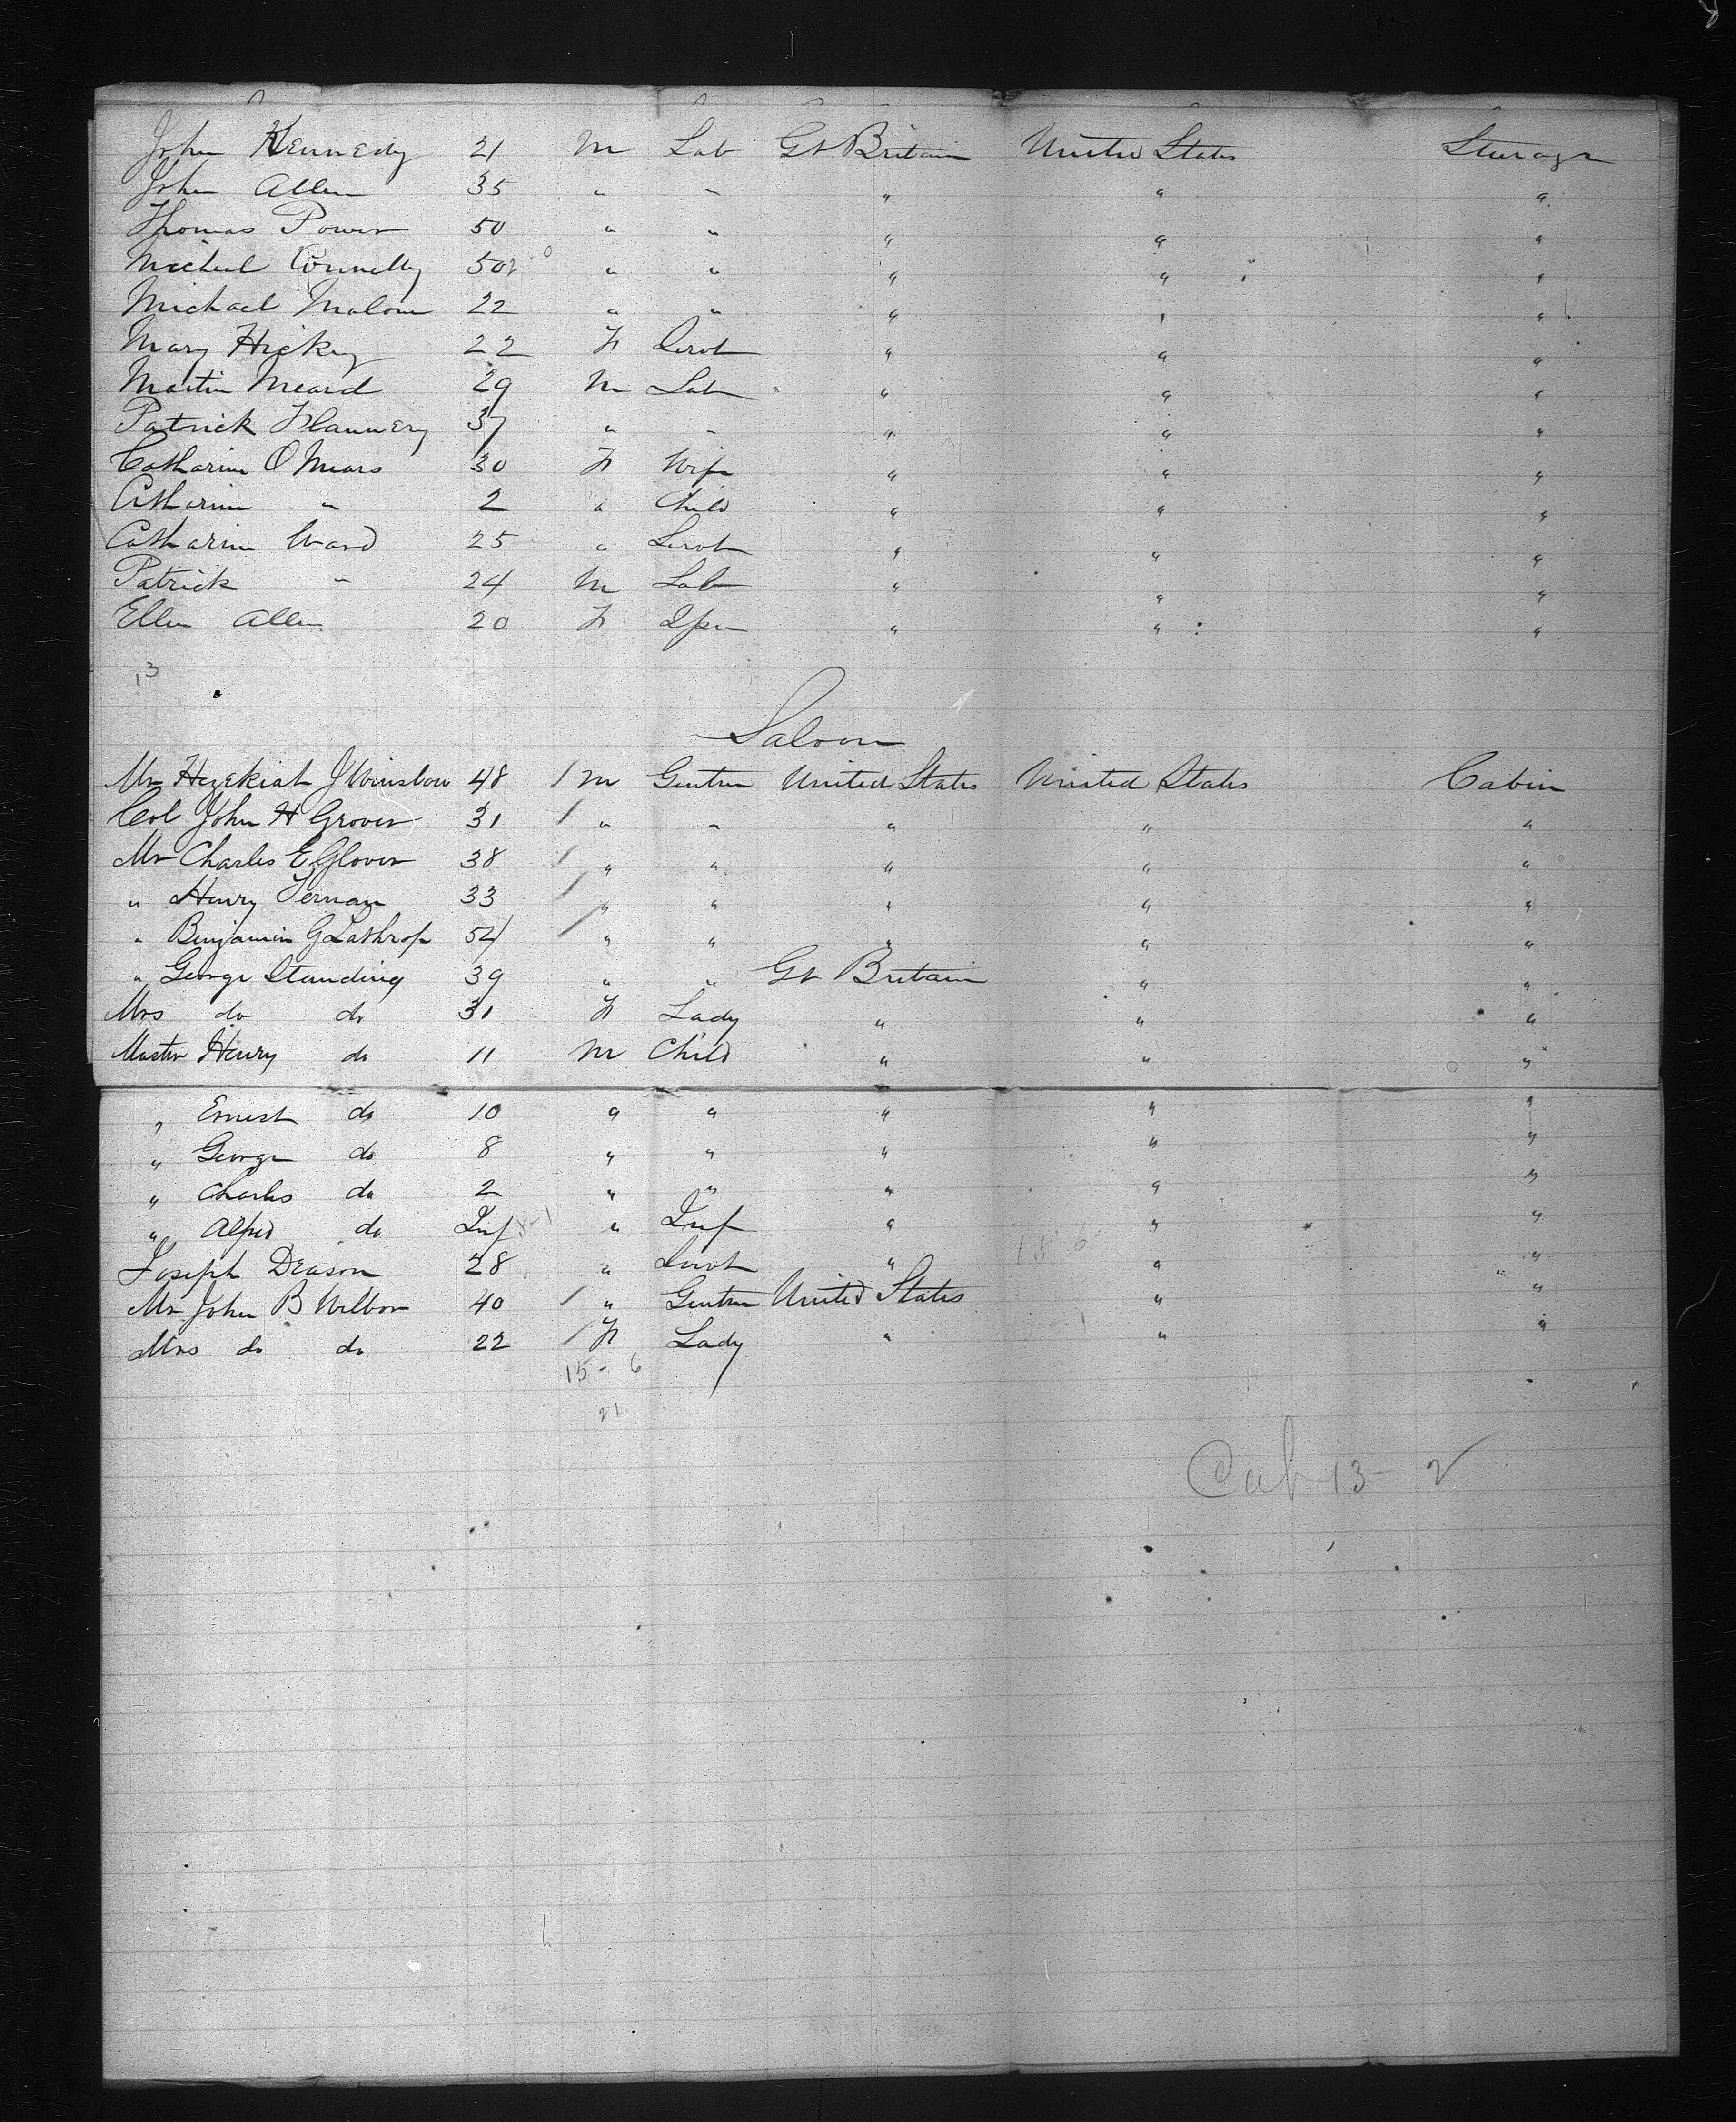 John Kennedy 21 M Lab Gt Britain United States Sturage
John Allen 35 " " " " "
Thomas Power 50 " " " " "
Micheal Connelly 50 " " " " "
Michael Malone 22 " " " " "
Mary Hickey 22 F Servt " " "
Martin Meard 29 M Lab " " "
Patrick Flannery 37 " " " " "
Catharine O Mears 30 F Wife " " "
Catharine " 2 " Child " " "
Catharine Ward 25 " Servt " " "
Patrick " 24 M Lab " " "
Ellen Allen 20 F Spin " " "
13
Saloon
Mr Hezekiah J Winslow 48 / M Gentm United States United States Cabin
Col John H Grover 31 / " " " " "
Mr Charles E Glover 38 / " " " " "
" Henry 33 / " " " " "
" Benjamin G Lathrop 54 / " " " " "
" George Standing 39 " " Gt Britain " "
Mrs do do 31 F Lady " " "
Master Henry do 11 M Child " " "
" Ernest do 10 " " " " "
" George do 8 " " " " "
" Charles do 2 " " " " "
" Alfred do Inf " Inf " " "
15 6
Joseph Deason 28 " Servt " " "
Mr John B Wilbor 40 / " Gentm United States " "
Mrs do do 22 / F Lady " " "
15 - 6
21
Cab 13 - 2